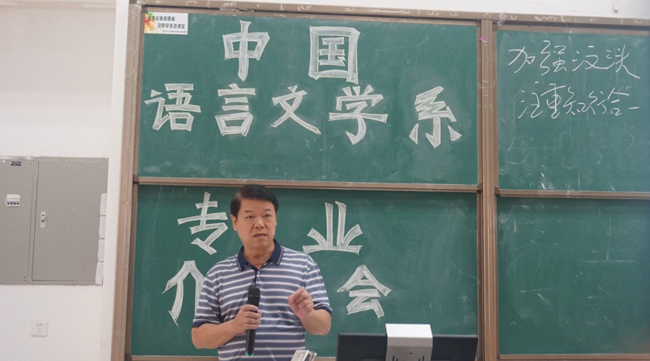 中国
语言文学系
专业
介会
加强汉头
注重知行合一